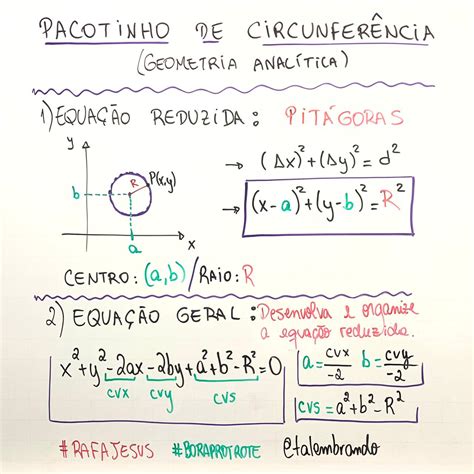 PACOTINHO DE CIRCUNFERÊNCIA
(GEOMETRIA ANALÍTICA)
1) EQUAÇÃO REDUZIDA: PITÁGORAS
y
P(x,y)
R
b
a
x
→ (Δx)²+(Δy)²=d²
→ (x-a)²+(y-b)²=R²
CENTRO: (a,b) / RAIO: R
2) EQUAÇÃO GERAL: Desenvolva e organize
a equação reduzida.
x²+y²-2ax-2by+a²+b²-R²=0
cvx cvy cvs
a=cvx/-2 b=cvy/-2
cvs=a²+b²-R²
#RAFAJESUS #BORAPROTROTE @talembrando